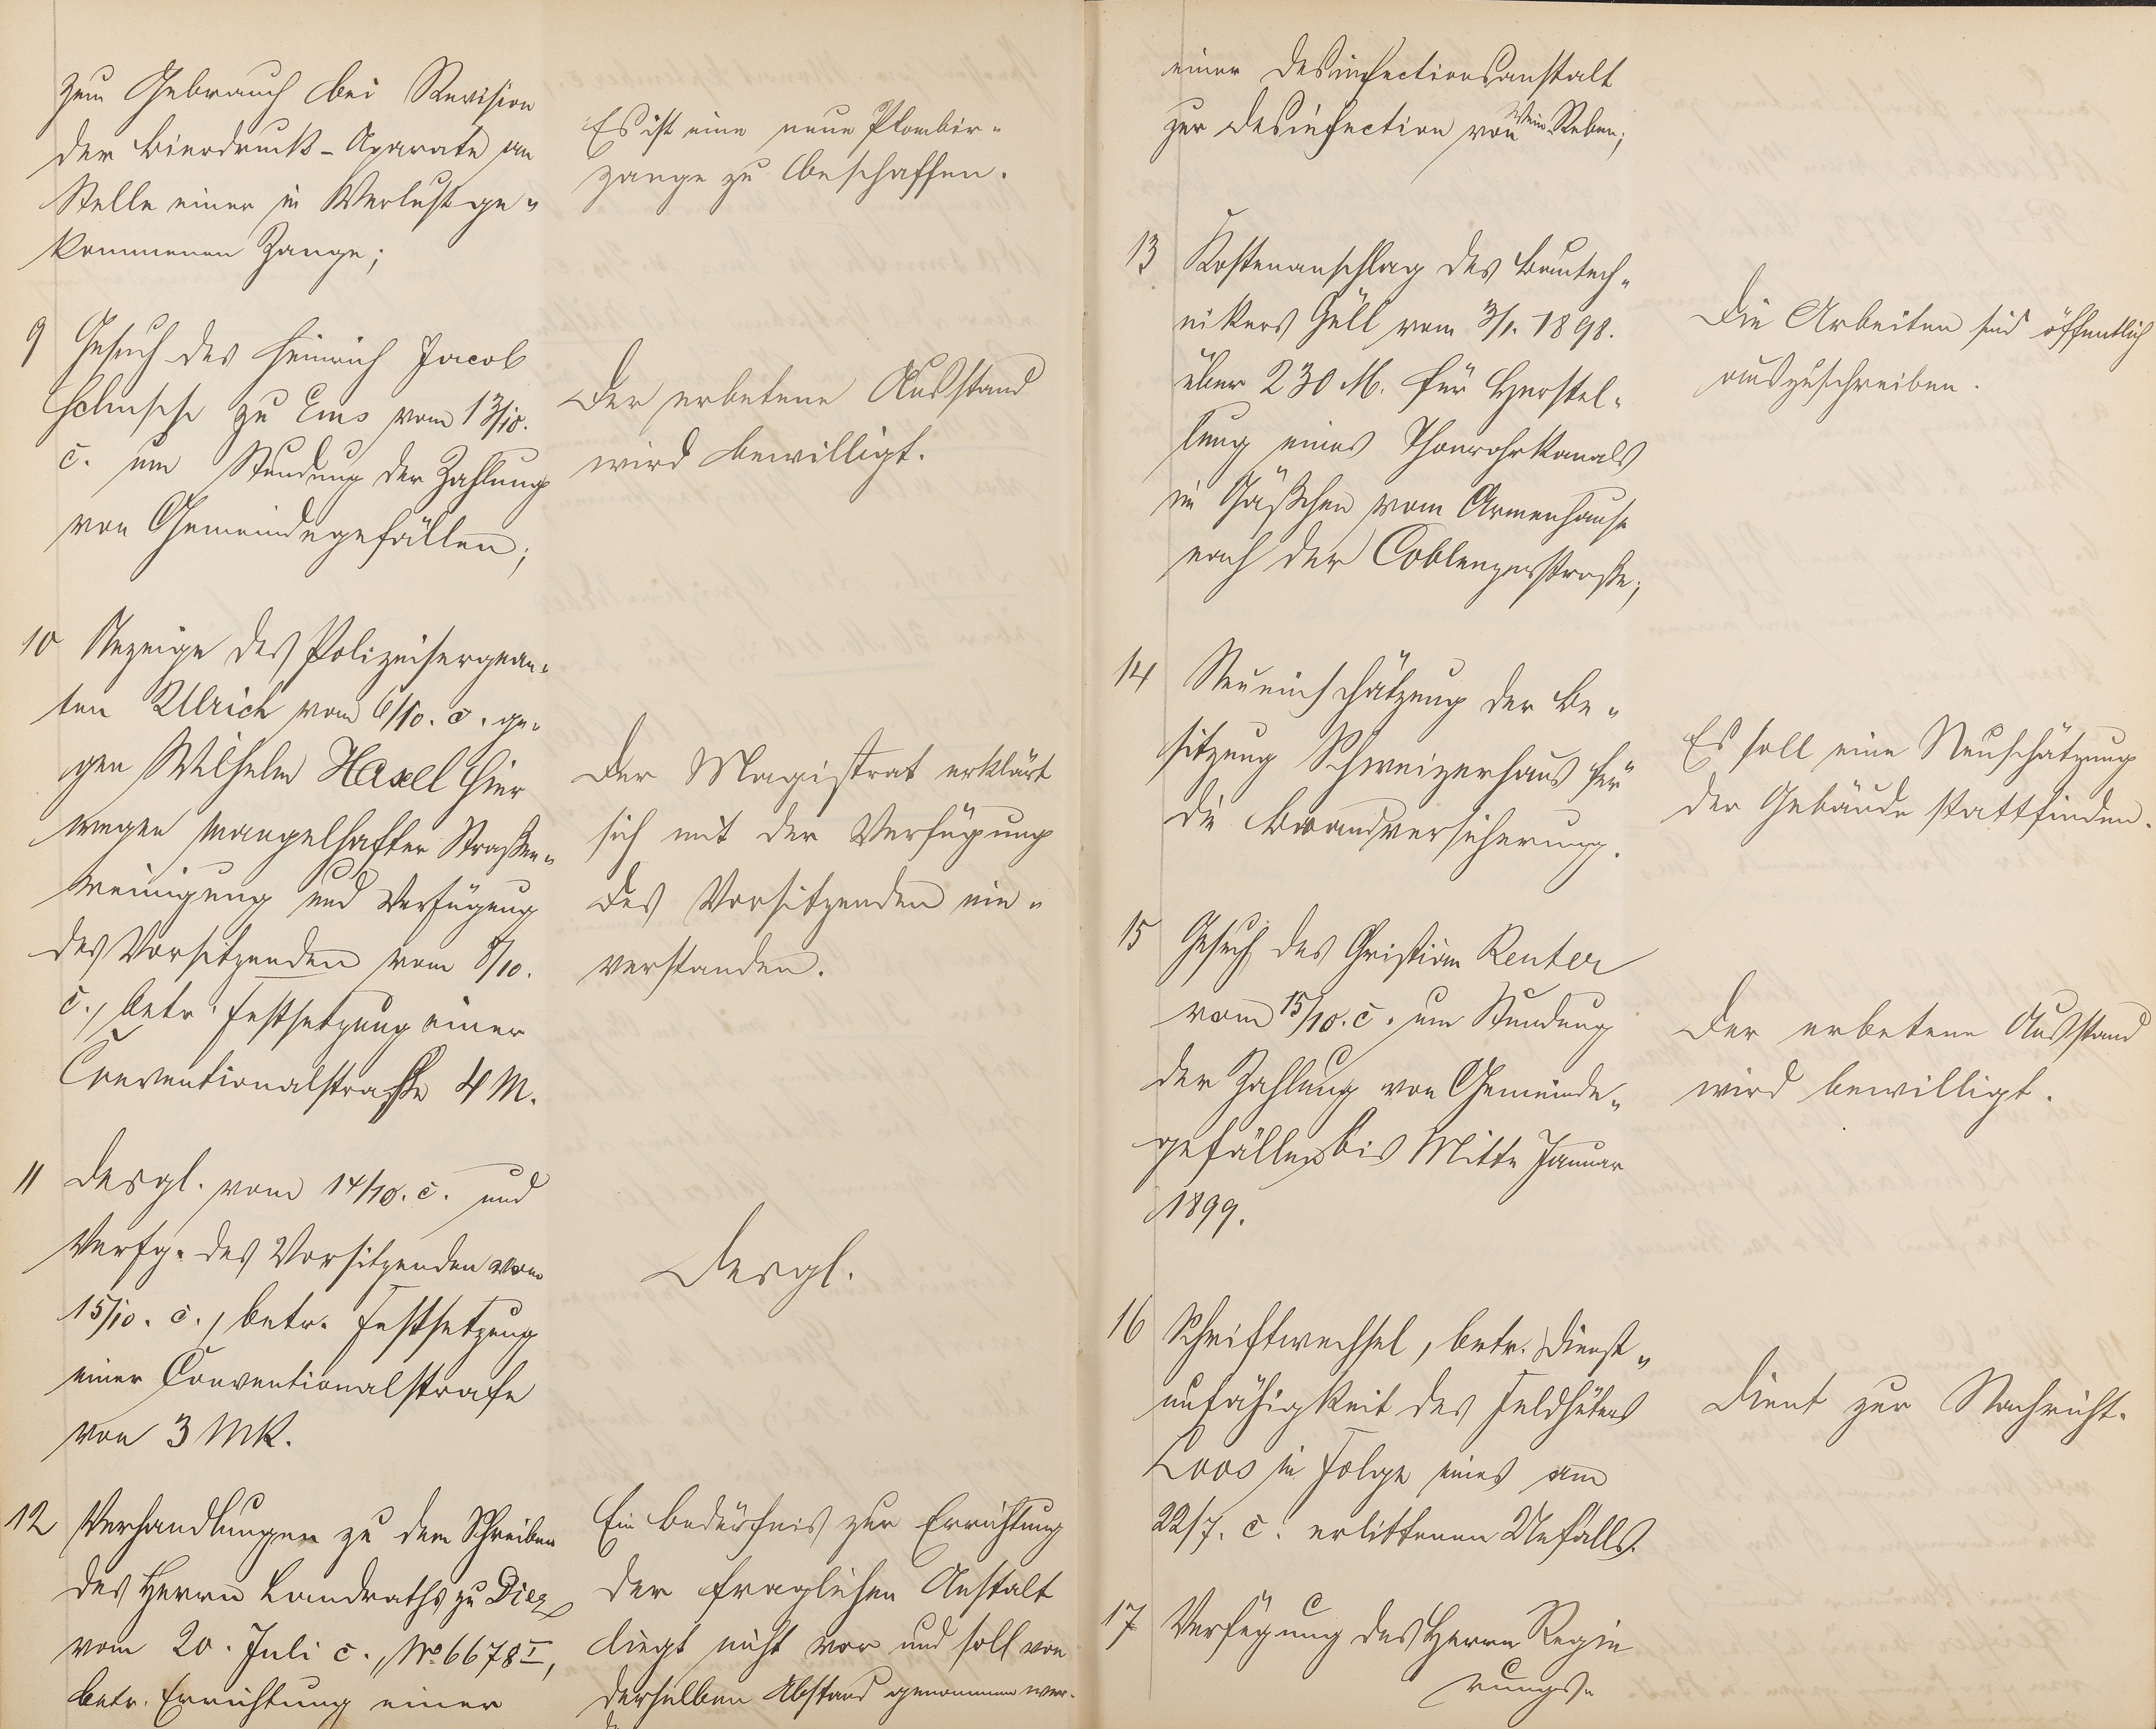 zum Gebrauch bei Revision
der Bierdruck-Aparate an
Stelle einer in Verlust ge-
kommenen Zange;
Es ist eine neue Plombir-
zange zu beschaffen.
9 Gesuch des Heinrich Jacob
zu Ems vom 13/10.
c. um Stundung der Zahlung
von Gemeindegefällen;
Der erbetene Ausstand
wird bewilligt.
10 Anzeige des Polizeisergean-
ten Ulrich vom 6/10. c. ge-
gen Wilhelm Hasel hier
wegen mangelhafter Straßen-
reinigung und Verfügung
des Vorsitzenden vom 8/10.
c., betr. Festsetzung einer
Conventionalstrafe 4 M.
Der Magistrat erklärt
sich mit der Verfügung
des Vorsitzenden ein-
verstanden.
11 Desgl. vom 14/10. c. und
Verfg. des Vorsitzenden vom
15/10. c., betr. Festsetzung
einer Conventionalstrafe
von 3 MK.
Desgl.
12 Verhandlungen zu dem Schreiben
des Herrn Landraths zu Diez
vom 20. Juli c., No 6678 I,
betr. Errichtung einer
Ein Bedürfnis zur Errichtung
der fraglichen Anstalt
liegt nicht vor und soll von
derselben Abstand genommen wer-
einer Desinfectionsanstalt
zur Desinfection von Wein-Reben;
13 Kostenanschlag des Bautech-
nikers Güll vom 3/1. 1898.
über 230 M. für Herstel-
lung eines Thonrohrkanals
im Gäßchen vom Armenhause
nach der Coblenzerstraße;
Die Arbeiten sind öffentlich
auszuschreiben.
14 Neueinschätzung der Be-
sitzung Schweizerhaus für
die Brandversicherung.
Es soll eine Neuschätzung
der Gebäude stattfinden.
15 Gesuch des Christian Reuter
vom 15/10. c. um Stundung
der Zahlung von Gemeinde-
gefällen bis Mitte Januar
1899.
Der erbetene Ausstand
wird bewilligt.
16 Schriftwechsel, betr. Dienst-
unfähigkeit des Feldhüters
Loos in Folge eines am
22/7. c. erlittenen Unfalls.
Dient zur Nachricht.
17 Verfügung des Herrn Regie
rungs-